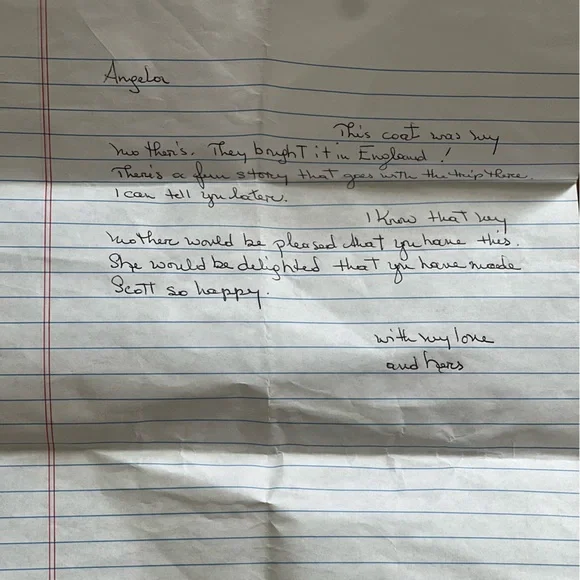 Angela
This coat was my
mother's. They bought it in England!
There's a fun story that goes with the trip there.
I can tell you later.
I know that my
mother would be pleased that you have this.
She would be delighted that you have made
Scott so happy.
with my love
and hers